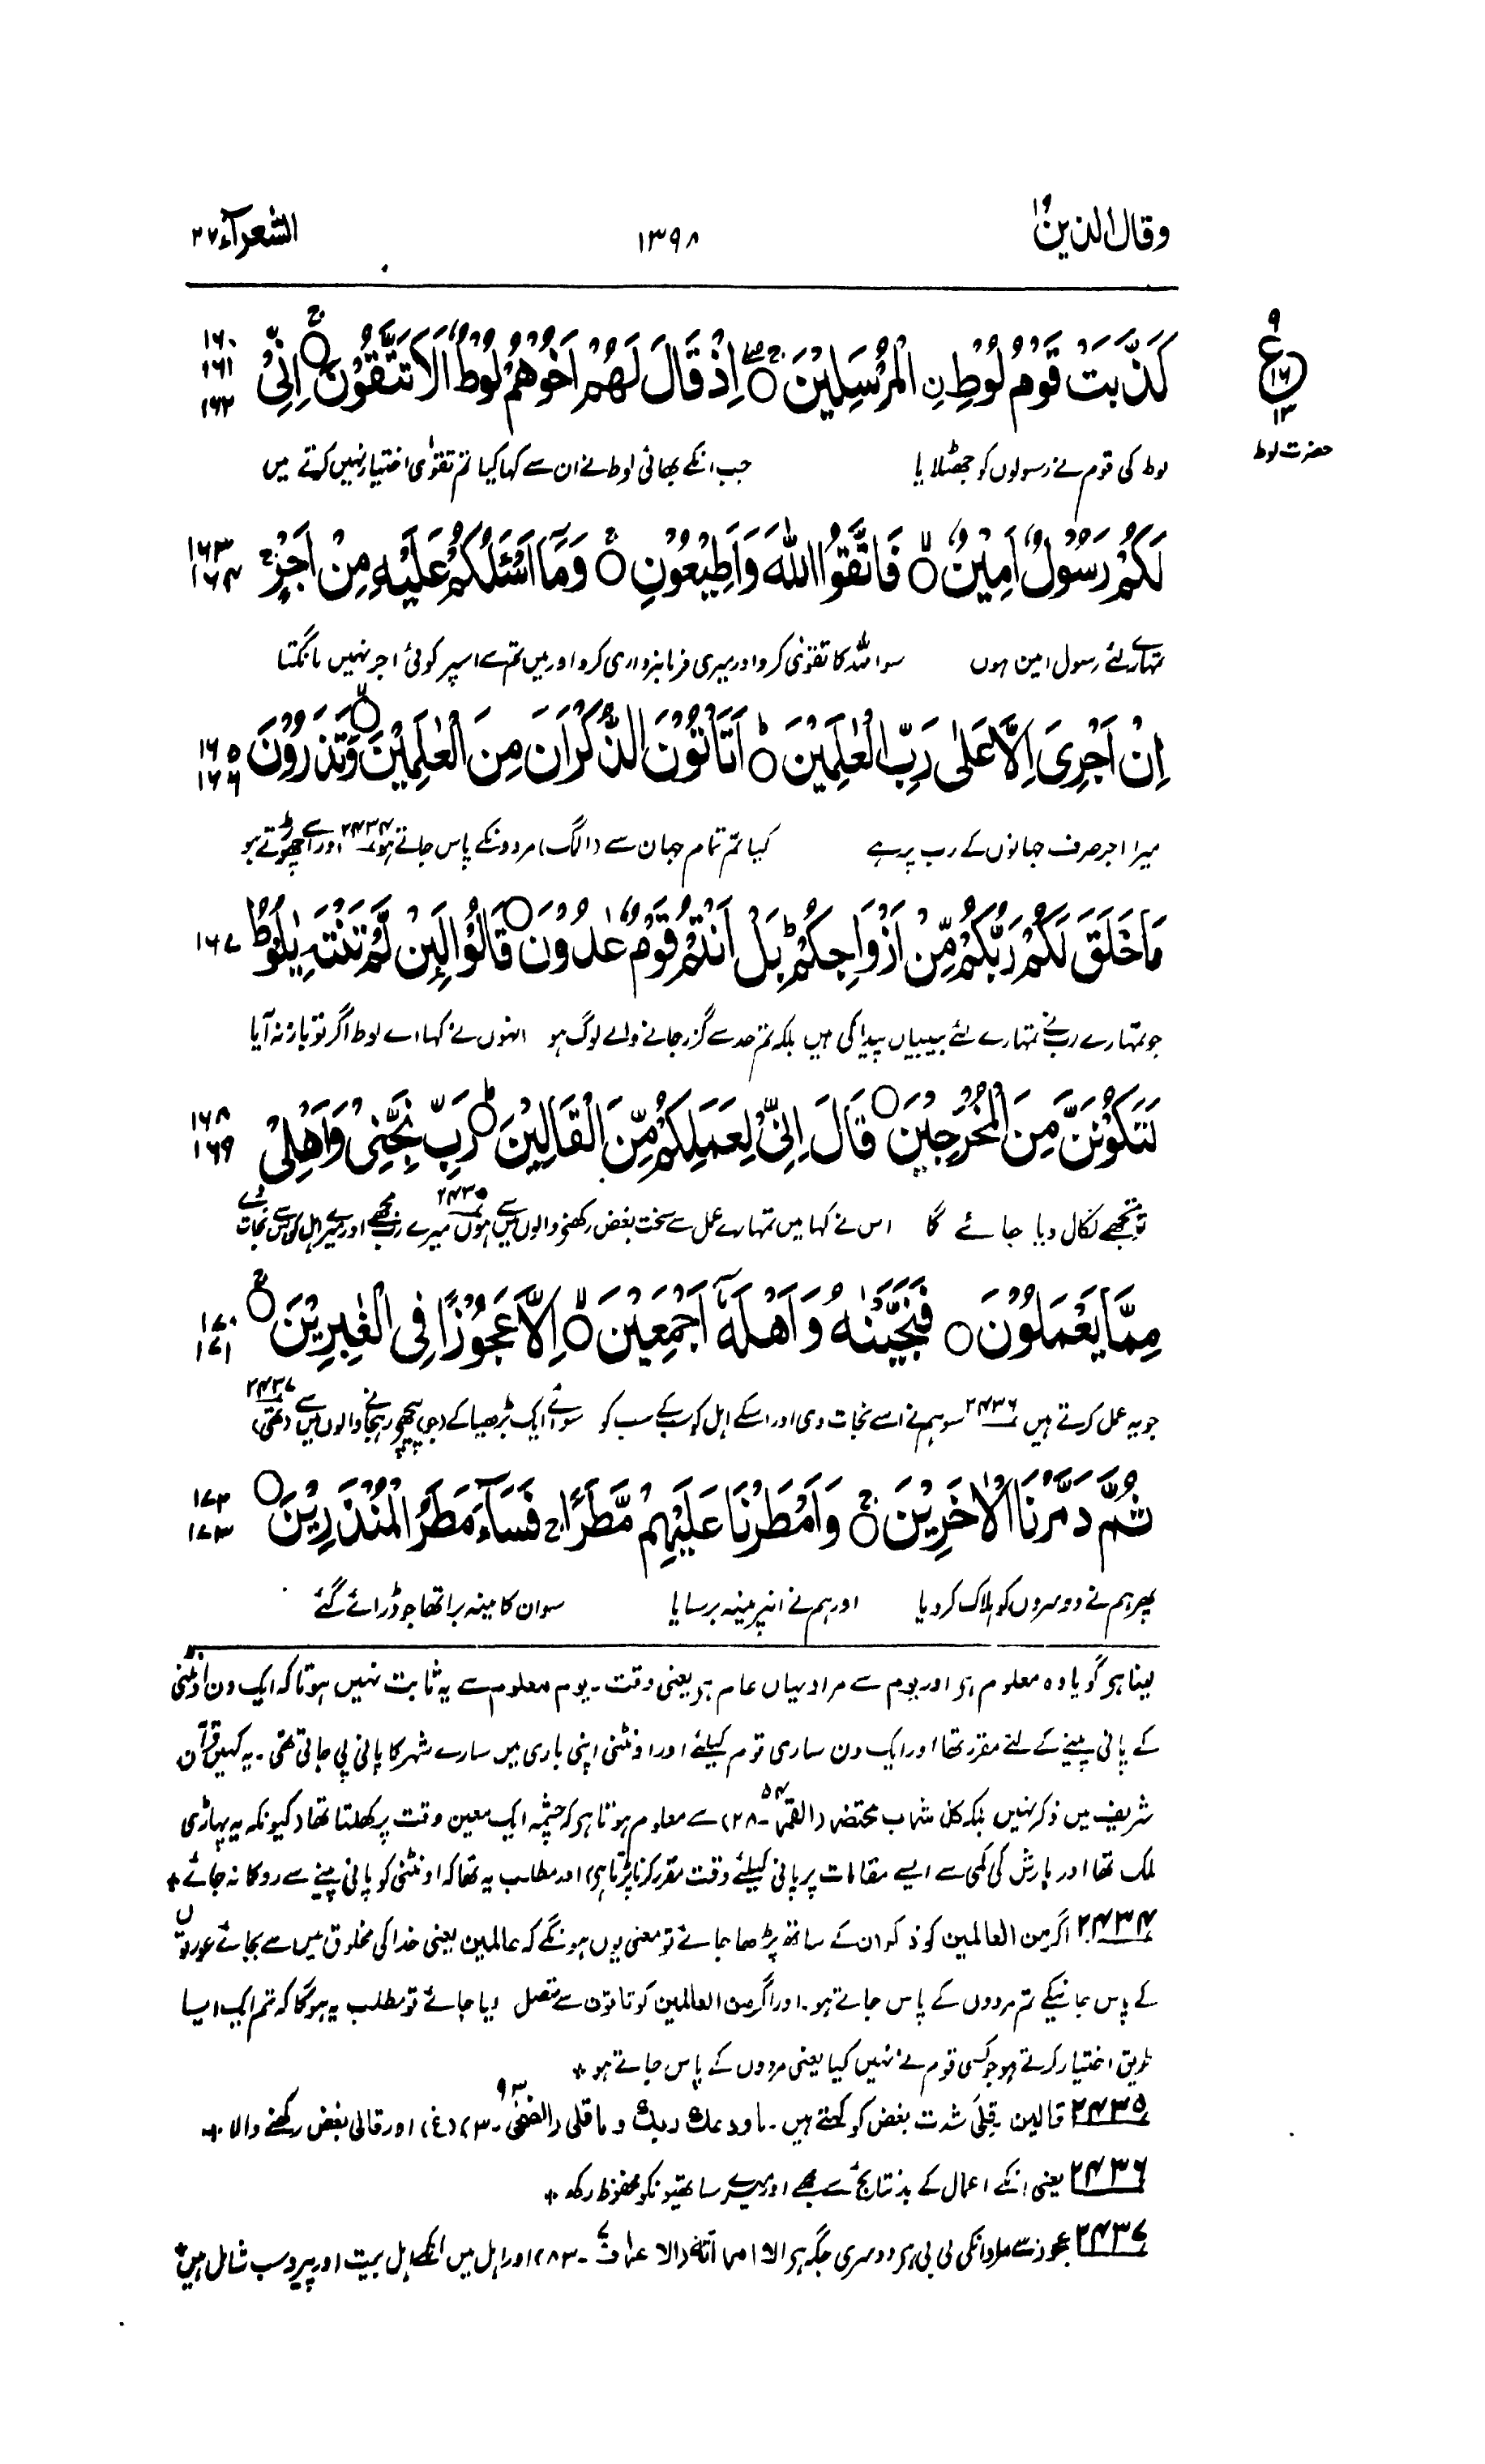 وقال الذین ١٩
١٣٩٨
الشعرآء ٢٧
٩
ع
١٦
١٣
حضرت لوط
كَذَّبَتْ قَوْمُ لُوْطِ نِ الْمُرْسَلِيْنَ ۝ اِذْ قَالَ لَهُمْ اَخُوْهُمْ لُوْطٌ اَلَا تَتَّقُوْنَ ۝ اِنِّىْ ١٦٠ ١٦١ ١٦٢
لوط کی قوم نے رسولوں کو جھٹلایا جب انکے بھائی لوط نے ان سے کہا کیا تم تقوٰی اختیار نہیں کرتے میں
لَكُمْ رَسُوْلٌ اَمِيْنٌ ۝ فَاتَّقُوا اللّٰهَ وَاَطِيْعُوْنِ ۝ وَمَآ اَسْـَٔلُكُمْ عَلَيْهِ مِنْ اَجْرٍ ج ١٦٣ ١٦٤
تمہارے لئے رسول امین ہوں سو اللہ کا تقوٰی کرو اور میری فرمانبرداری کرو اور میں تم سے اسپر کوئی اجر نہیں مانگتا
اِنْ اَجْرِىَ اِلَّا عَلٰى رَبِّ الْعٰلَمِيْنَ ۝ اَتَاْتُوْنَ الذُّكْرَانَ مِنَ الْعٰلَمِيْنَ ۝ وَتَذَرُوْنَ ١٦٥ ١٦٦
میرا اجر صرف جہانوں کے رب پر ہے کیا تم تمام جہان سے (الگ) مردونکے پاس جاتے ہو ٢٤٣٤ اور اسے چھوڑتے ہو
مَا خَلَقَ لَكُمْ رَبُّكُمْ مِّنْ اَزْوَاجِكُمْ ط بَلْ اَنْتُمْ قَوْمٌ عٰدُوْنَ ۝ قَالُوْا لَىِٕنْ لَّمْ تَنْتَهِ يٰلُوْطُ ١٦٧
جو تمہارے رب نے تمہارے لئے بیبیاں پیدا کی ہیں بلکہ تم حد سے گزر جانے والے لوگ ہو انہوں نے کہا اے لوط اگر تو باز نہ آیا
لَتَكُوْنَنَّ مِنَ الْمُخْرَجِيْنَ ۝ قَالَ اِنِّىْ لِعَمَلِكُمْ مِّنَ الْقَالِيْنَ ۝ رَبِّ نَجِّنِىْ وَاَهْلِىْ ١٦٨ ١٦٩
تو تجھے نکال دیا جائے گا اس نے کہا میں تمہارے عمل سے سخت بغض رکھنے والوں میں سے ہوں ٢٤٣٥ میرے رب مجھے اور میرے اہل کو اس سے نجات دے
مِمَّا يَعْمَلُوْنَ ۝ فَنَجَّيْنٰهُ وَاَهْلَهٗٓ اَجْمَعِيْنَ ۝ اِلَّا عَجُوْزًا فِى الْغٰبِرِيْنَ ۝ ١٧٠ ١٧١
جو یہ عمل کرتے ہیں ٢٤٣٦ سو ہم نے اسے نجات دی اور اسکے اہل کو سب کے سب کو سوائے ایک بڑھیا کے (جو) پیچھے رہنے والوں میں سے (تھی) ٢٤٣٧
ثُمَّ دَمَّرْنَا الْاٰخَرِيْنَ ۝ وَاَمْطَرْنَا عَلَيْهِمْ مَّطَرًا ج فَسَآءَ مَطَرُ الْمُنْذَرِيْنَ ۝ ١٧٢ ١٧٣
پھر ہم نے دوسروں کو ہلاک کردیا اور ہم نے انپر مینہ برسایا سو ان کا مینہ برا تھا جو ڈرائے گئے
لینا ہر گویا وہ معلوم ہر اور یوم سے مراد یہاں عام ہر یعنی وقت۔ یوم معلوم سے یہ ثابت نہیں ہوتا کہ ایک دن اونٹنی
کے پانی پینے کے لئے مقرر تھا اور ایک دن ساری قوم کیلئے اور اونٹنی اپنی باری میں سارے شہر کا پانی پی جاتی تھی۔ یہ کہیں قرآن
شریف میں ذکر نہیں بلکہ کل شرب محتضر (القمر ٥٤۔ ٢٨) سے معلوم ہوتا ہر کہ چشمہ ایک معین وقت پر کھلتا تھا (کیونکہ یہ پہاڑی
ملک تھا اور بارش کی کمی سے ایسے مقامات پر پانی کیلئے وقت مقرر کرنا پڑتا ہر) اور مطلب یہ تھا کہ اونٹنی کو پانی پینے سے روکا نہ جائے *
٢٤٣٤ اگر من العالمین کو ذکران کے ساتھ پڑھا جائے تو معنی یوں ہونگے کہ عالمین یعنی خدا کی مخلوق میں سے بجائے عورتوں
کے پاس جانیکے تم مردوں کے پاس جاتے ہو۔ اور اگر من العالمین کو تاتون سے متصل دیا جائے تو مطلب یہ ہوگا کہ تم ایک ایسا
طریق اختیار کرتے ہو جو کسی قوم نے نہیں کیا یعنی مردوں کے پاس جاتے ہو *
٢٤٣٥ قالین۔ قِلٰی شدت بغض کو کہتے ہیں۔ ما ودعك ربك وما قلی (الضحٰی ٩٣۔ ٣) (غ) اور قالی بغض رکھنے والا *
٢٤٣٦ یعنی انکے اعمال کے بد نتائج سے مجھے اور میرے ساتھیونکو محفوظ رکھ *
٢٤٣٧ عجوز سے مراد انکی بی بی ہر دوسری جگہ ہر الا امراتہ (الاعراف ٧۔ ٨٣) اور اہل میں انکے اہل بیت اور پیرو سب شامل ہیں *